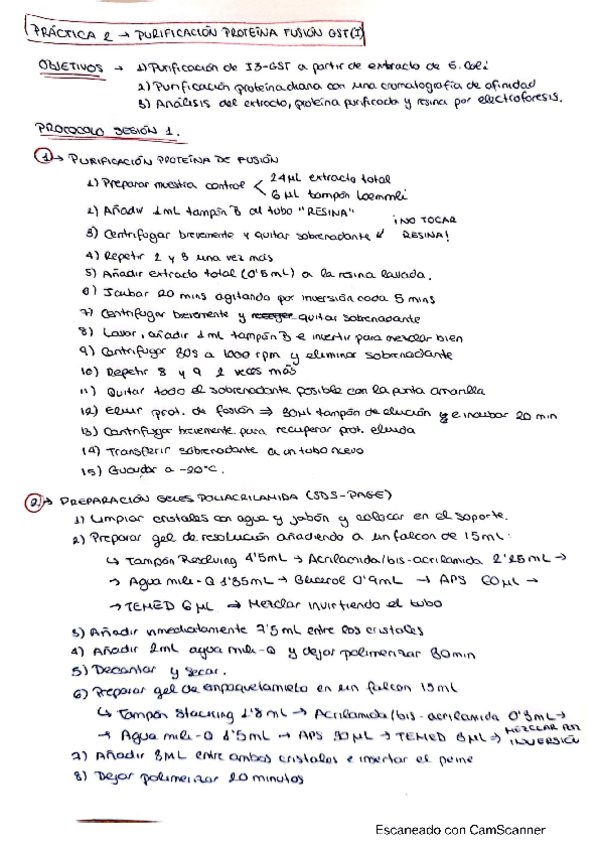 PRÁCTICA 2 → PURIFICACIÓN PROTEÍNA FUSIÓN GST(I)
OBJETIVOS → 1) Purificación de I3-GST a partir de extracto de E. Coli
2) Purificación proteína diana con una cromatografía de afinidad
3) Análisis del extracto, proteína purificada y resina por electroforesis.
PROTOCOLO SESIÓN 1.
1 → PURIFICACIÓN PROTEÍNA DE FUSIÓN
1) Preparar muestra control < 24 µL extracto total
6 µL tampón Laemmli
2) Añadir 1 mL tampón B al tubo "RESINA"
3) Centrifugar brevemente y quitar sobrenadante ¡NO TOCAR RESINA!
4) Repetir 2 y 3 una vez más
5) Añadir extracto total (0'5 mL) a la resina lavada.
6) Icubar 20 mins agitando por inversión cada 5 mins
7) Centrifugar brevemente y quitar sobrenadante
8) Lavar, añadir 1 mL tampón B e invertir para mezclar bien
9) Centrifugar 30s a 1000 rpm y eliminar sobrenadante
10) Repetir 8 y 9 2 veces más
11) Quitar todo el sobrenadante posible con la punta amarilla
12) Eluir prot. de fusión ⇒ 30 µL tampón de elución y e incubar 20 min
13) Centrifugar brevemente para recuperar prot. eluida
14) Transferir sobrenadante a un tubo nuevo
15) Guardar a -20°C.
2 → PREPARACIÓN GELES POLIACRILAMIDA (SDS-PAGE)
1) Limpiar cristales con agua y jabón y colocar en el soporte.
2) Preparar gel de resolución añadiendo a un falcon de 15 mL:
↳ Tampón Resolving 4'5 mL → Acrilamida/bis-acrilamida 2'25 mL →
→ Agua mili-Q 1'35 mL → Glicerol 0'9 mL → APS 60 µL →
→ TEMED 6 µL ⇒ Mezclar invirtiendo el tubo
3) Añadir inmediatamente 7'5 mL entre los cristales
4) Añadir 2 mL agua mili-Q y dejar polimerizar 30 min
5) Decantar y secar.
6) Preparar gel de empaquetamieto en un falcon 15 mL
↳ Tampón Stacking 1'8 mL → Acrilamida/bis-acrilamida 0'3 mL →
→ Agua mili-Q 1'5 mL → APS 30 µL → TEMED 3 µL ⇒ MEZCLAR POR INVERSIÓN
7) Añadir 3 mL entre ambos cristales e insertar el peine
8) Dejar polimerizar 20 minutos
Escaneado con CamScanner